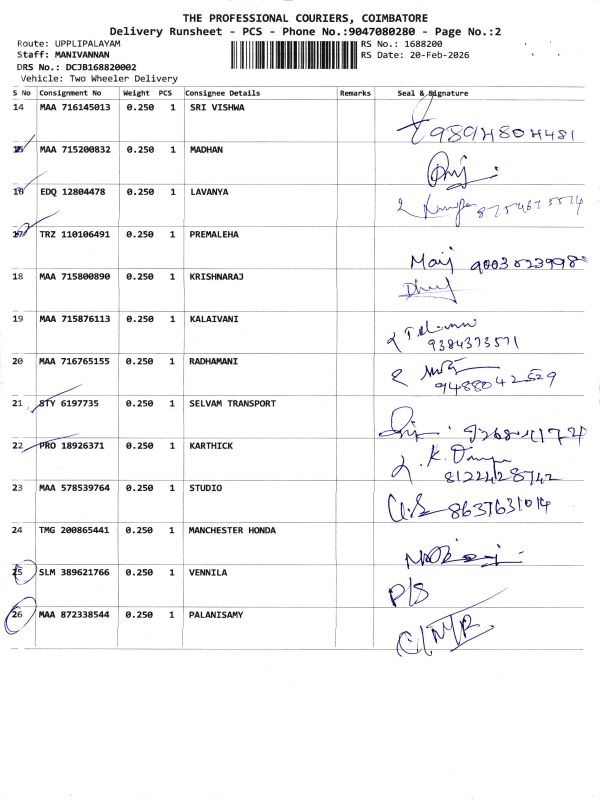 THE PROFESSIONAL COURIERS, COIMBATORE
Delivery Runsheet - PCS - Phone No.:9047080280 - Page No.:2
Route: UPPLIPALAYAM RS No.: 1688200
Staff: MANIVANNAN RS Date: 20-Feb-2026
DRS No.: DCJB168820002
Vehicle: Two Wheeler Delivery
S No Consignment No Weight PCS Consignee Details Remarks Seal & Signature
14 MAA 716145013 0.250 1 SRI VISHWA
9894804481
15 MAA 715200832 0.250 1 MADHAN
16 EDQ 12804478 0.250 1 LAVANYA
17 TRZ 110106491 0.250 1 PREMALEHA
18 MAA 715800890 0.250 1 KRISHNARAJ
19 MAA 715876113 0.250 1 KALAIVANI
9384373571
20 MAA 716765155 0.250 1 RADHAMANI
21 STY 6197735 0.250 1 SELVAM TRANSPORT
22 PRO 18926371 0.250 1 KARTHICK
8122428742
23 MAA 578539764 0.250 1 STUDIO
8637631014
24 TMG 200865441 0.250 1 MANCHESTER HONDA
25 SLM 389621766 0.250 1 VENNILA
P/S
26 MAA 872338544 0.250 1 PALANISAMY